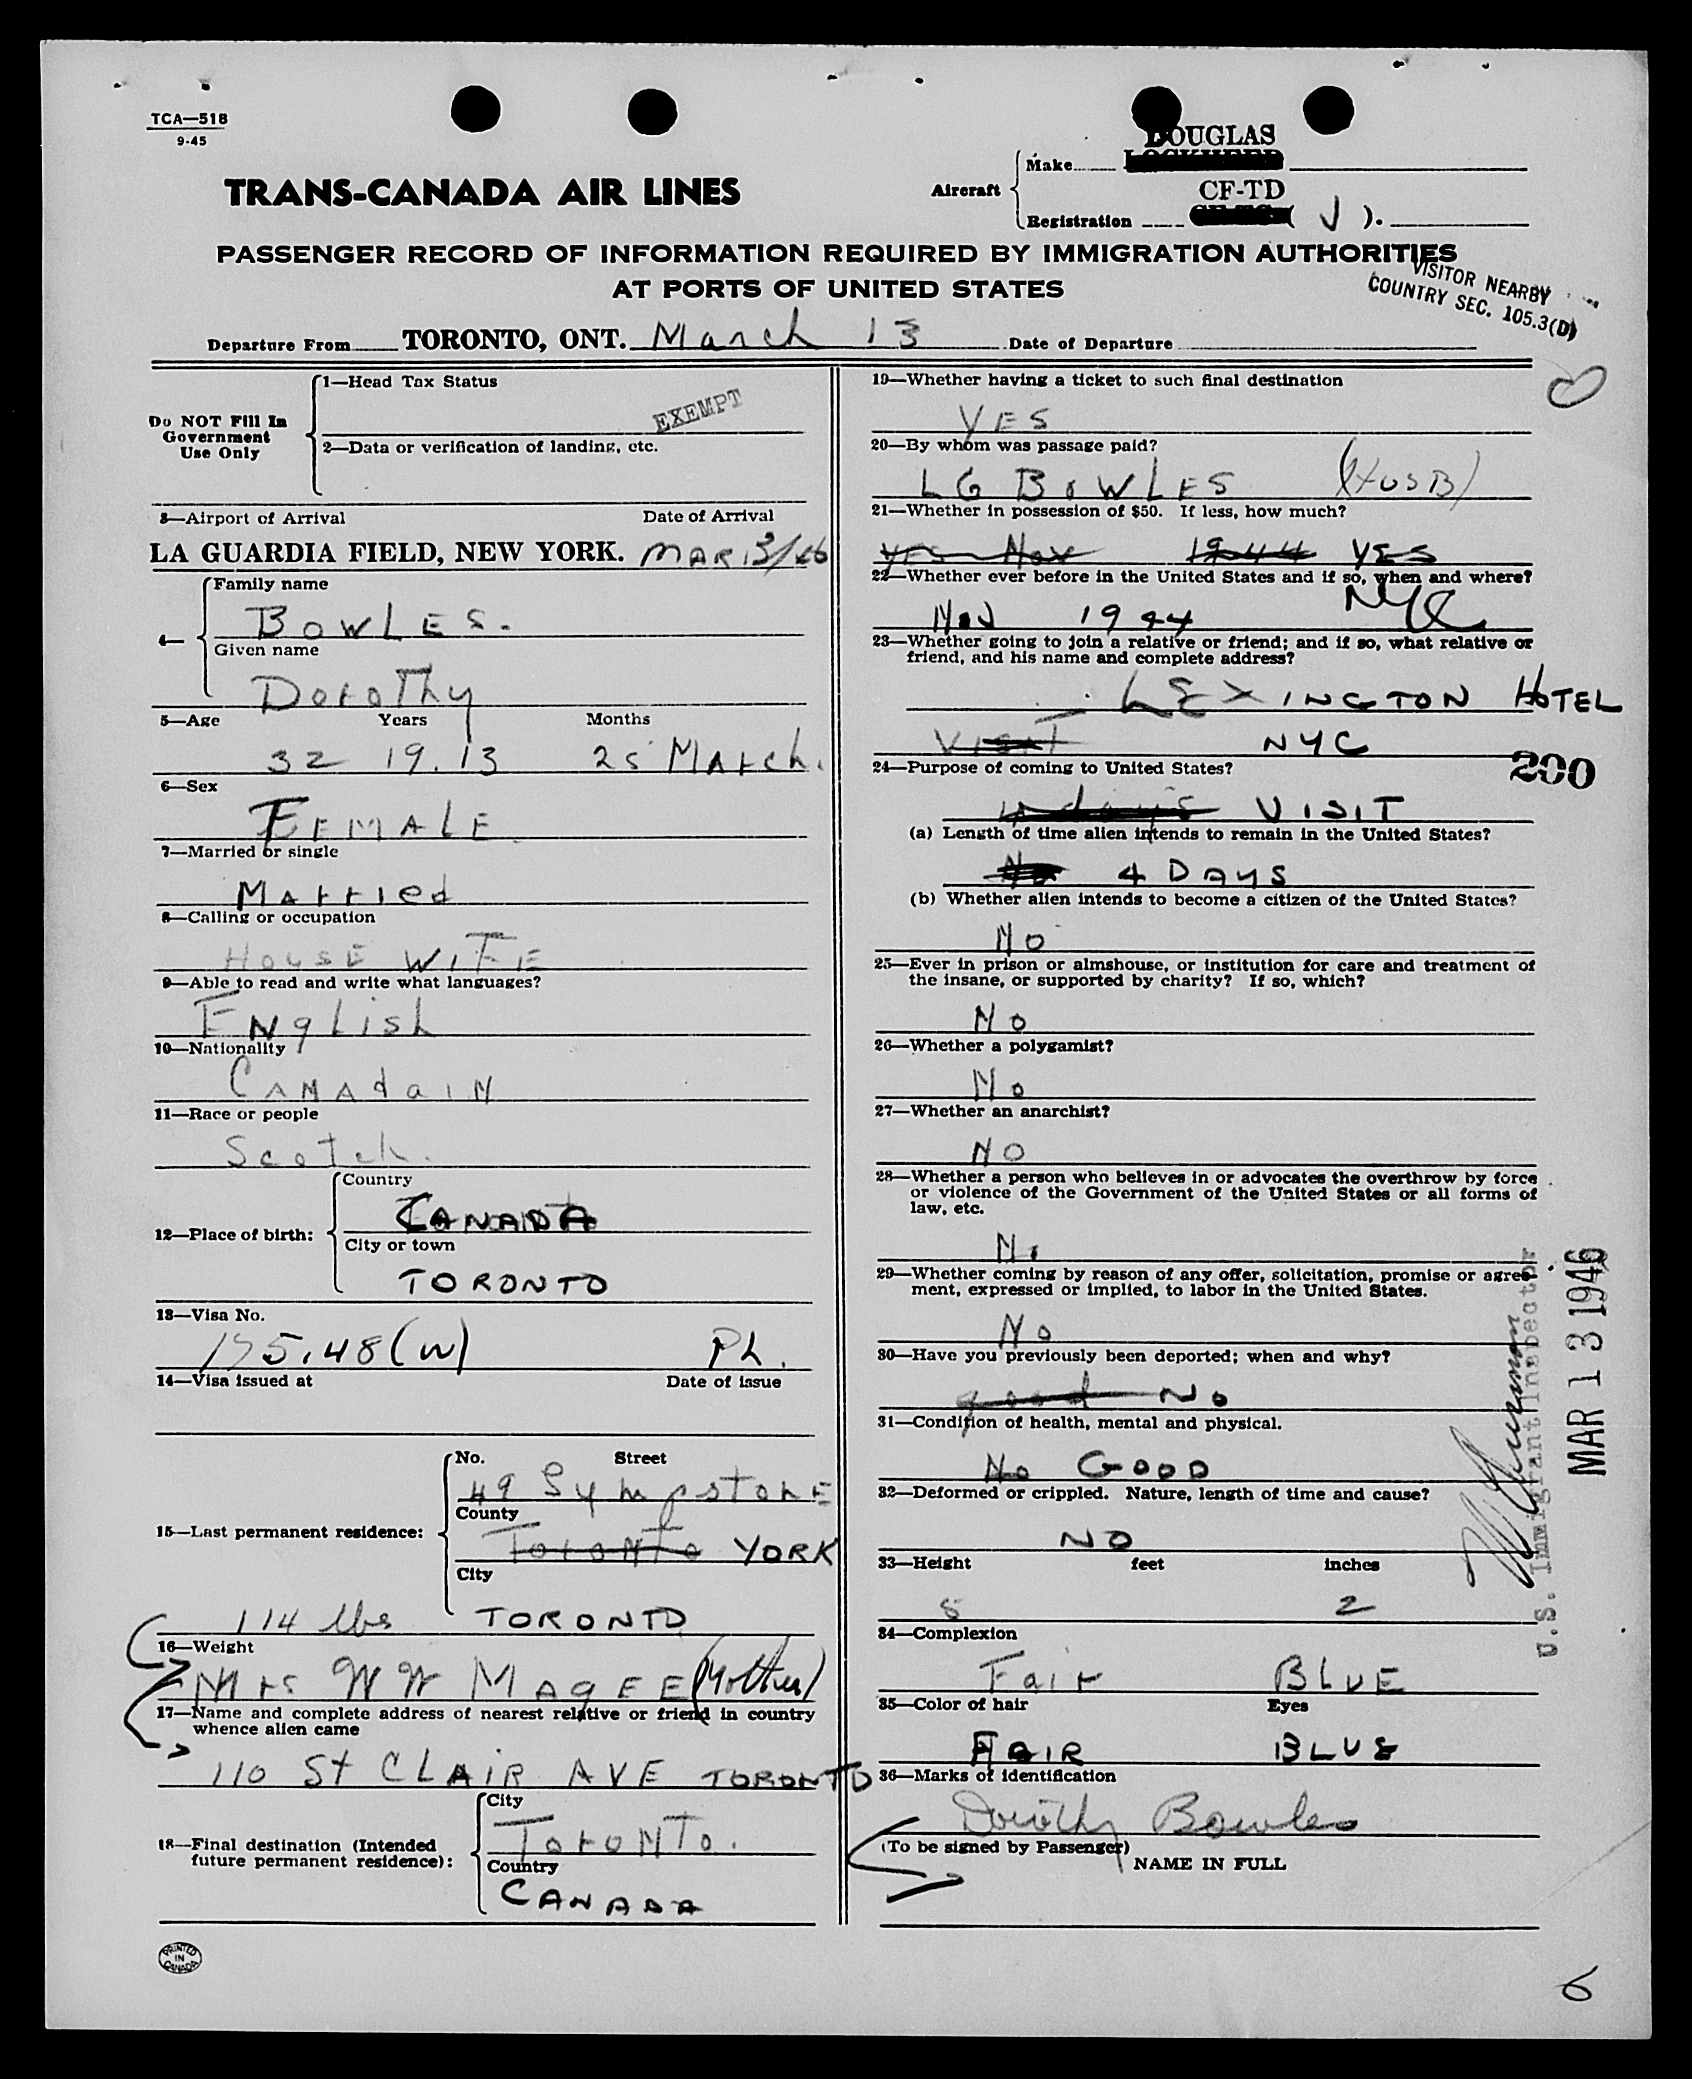 TCA—518
9-45
DOUGLAS
Make
TRANS-CANADA AIR LINES
Aircraft
CF-TD
Registration ( J ).
PASSENGER RECORD OF INFORMATION REQUIRED BY IMMIGRATION AUTHORITIES
AT PORTS OF UNITED STATES
VISITOR NEARBY
COUNTRY SEC. 105.3(D)
Departure From TORONTO, ONT. March 13 Date of Departure
Do NOT Fill In
Government
Use Only
1—Head Tax Status
EXEMPT
2—Data or verification of landing, etc.
3—Airport of Arrival Date of Arrival
LA GUARDIA FIELD, NEW YORK. MAR 13/46
4—
Family name
BOWLES.
Given name
Dorothy
5—Age Years Months
32 19.13 25 March.
6—Sex
FEMALE
7—Married or single
Married
8—Calling or occupation
HOUSE WIFE
9—Able to read and write what languages?
ENglish
10—Nationality
CANAdaiN
11—Race or people
Scotch.
12—Place of birth:
Country
CANADA
City or town
TORONTO
13—Visa No.
175.48(W) Ph.
14—Visa issued at Date of issue
15—Last permanent residence:
No. Street
49
County
Toronto YORK
City
114 lbs TORONTO
16—Weight
Mrs W W MAGEE (Mother)
17—Name and complete address of nearest relative or friend in country
whence alien came
110 St CLAIR AVE TORONTO
18—Final destination (Intended
future permanent residence):
City
ToroNTo.
Country
CANADA
PRINTED
IN
CANADA
19—Whether having a ticket to such final destination
YES
20—By whom was passage paid?
LG BOWLES (HUSB)
21—Whether in possession of $50. If less, how much?
YES Nov 1944 YES
22—Whether ever before in the United States and if so, when and where?
Nov 1944 NYC
23—Whether going to join a relative or friend; and if so, what relative or
friend, and his name and complete address?
LEXINGTON HOTEL
VISIT NYC
24—Purpose of coming to United States?
200
days VISIT
(a) Length of time alien intends to remain in the United States?
No 4 DAYS
(b) Whether alien intends to become a citizen of the United States?
No
25—Ever in prison or almshouse, or institution for care and treatment of
the insane, or supported by charity? If so, which?
No
26—Whether a polygamist?
No
27—Whether an anarchist?
NO
28—Whether a person who believes in or advocates the overthrow by force
or violence of the Government of the United States or all forms of
law, etc.
No
29—Whether coming by reason of any offer, solicitation, promise or agree-
ment, expressed or implied, to labor in the United States.
No
30—Have you previously been deported; when and why?
good No
31—Condition of health, mental and physical.
No GOOD
32—Deformed or crippled. Nature, length of time and cause?
NO
33—Height feet inches
5 2
34—Complexion
Fair BLUE
35—Color of hair Eyes
FAIR BLUE
36—Marks of identification
Dorothy Bowles
(To be signed by Passenger)
NAME IN FULL
U.S. Immigrant Inspector
MAR 13 1946
6